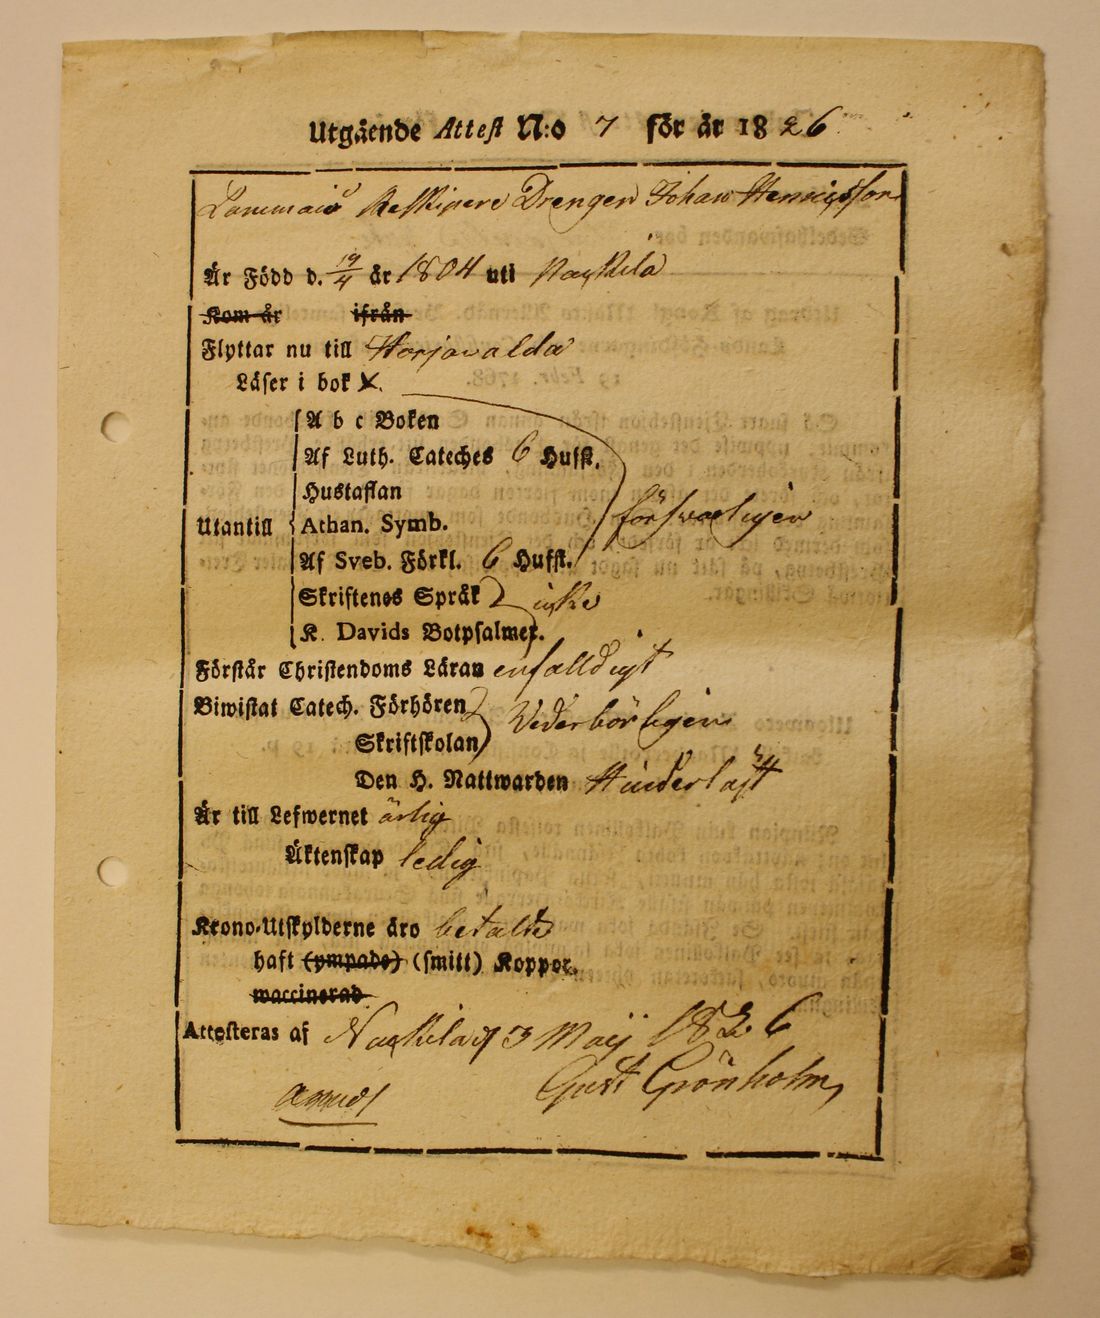 Utgående Attest N:o 7 för år 1826
Lammais Keskipere Drengen Johan Henricsson
Är Född d. 19/4 år 1804 uti Nackila
Kom år ifrån
Flyttar nu till Harjavalda
Läser i bok X.
A b c Boken
Af Luth. Cateches 6 Hufst.
Hustaflan
Utantill Athan. Symb. försvarligen
Af Sveb. Förkl. 6 Hufst.
Skriftenes Språk icke
K. Davids Botpsalmer.
Förstår Christendoms Läran enfalldigt
Biwistat Catech. Förhören Vederbörligen
Skriftskolan
Den H. Nattwarden Hinderlöst
Är till Lefwernet ärlig
Äktenskap ledig
Krono-Utskylderne äro betalte
haft (ympade) (smitt) Koppor.
waccinerad
Attesteras af Nackila d 3 Maij 1826
Gust Grönholm